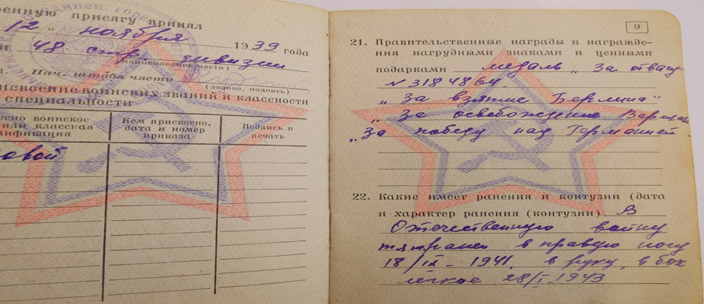 оенную присягу принял
12 " ноября 1939 года
48 стр. дивизии
(наименование части)
Нач. штаба части
(звание, подпись)
присвоение воинских званий и классности
специальности
ено воинское
или классная
лификация
Кем присвоено,
дата и номер
приказа
Подпись и
печать
овой
9
21. Правительственные награды и награжде-
ния нагрудными знаками и ценными
подарками медаль „За отвагу
№ 3184864.
„За взятие Берлина"
„За освобождение Варшав
„За победу над Германией.
22. Какие имеет ранения и контузии (дата
и характер ранения (контузии) В
Отечественную войну
тяж ранен в правую ногу
18/IX - 1941. в руку, в бок
легкое 28/I 1943